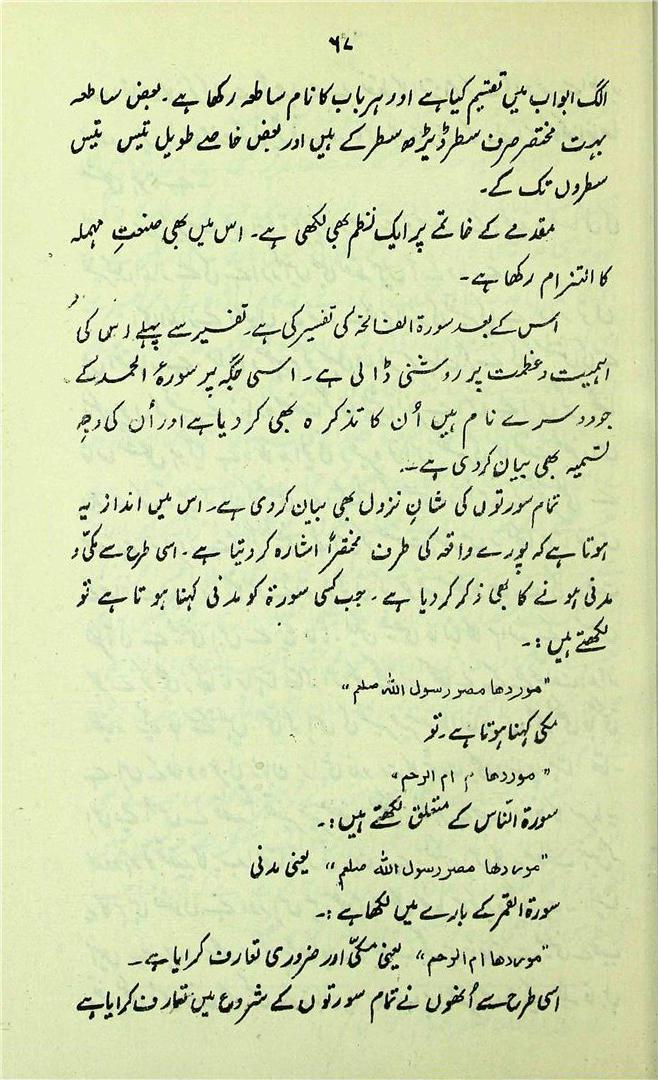 ۶۷
الگ ابواب میں تقسیم کیا ہے اور ہر باب کا نام ساطعہ رکھا ہے۔ بعض ساطعہ
بہت مختصر صرف سطر ڈیڑھ سطر کے ہیں اور بعض خاصے طویل تیس تیس
سطروں تک گے۔
مقدمے کے خاتمے پر ایک نظم بھی لکھی ہے۔ اس میں بھی صنعتِ مہملہ
کا التزام رکھا ہے۔
اس کے بعد سورۃ الفاتحہ کی تفسیر کی ہے۔ تفسیر سے پہلے اس کی
اہمیت و عظمت پر روشنی ڈالی ہے۔ اسی جگہ پر سورۂ الحمد کے
جو دوسرے نام ہیں اُن کا تذکرہ بھی کر دیا ہے اور اُن کی وجہِ
تسمیہ بھی بیان کر دی ہے۔
تمام سورتوں کی شانِ نزول بھی بیان کر دی ہے۔ اس میں انداز یہ
ہوتا ہے کہ پورے واقعہ کی طرف مختصراً اشارہ کر دیتا ہے۔ اسی طرح سے مکی و
مدنی ہونے کا بھی ذکر کر دیا ہے۔ جب کسی سورۃ کو مدنی کہنا ہوتا ہے تو
لکھتے ہیں :۔
"موردھا مصر رسول اللہ صلعم"
مکی کہنا ہوتا ہے۔ تو
"موردھا ام الرحم"
سورۃ النّاس کے متعلق لکھتے ہیں :۔
"موردھا مصر رسول اللہ صلعم" یعنی مدنی
سورۃ القمر کے بارے میں لکھا ہے :۔
"موردھا ام الرحم" یعنی مکیّ اور ضروری تعارف کرایا ہے۔
اسی طرح سے اُنھوں نے تمام سورتوں کے شروع میں تعارف کرایا ہے